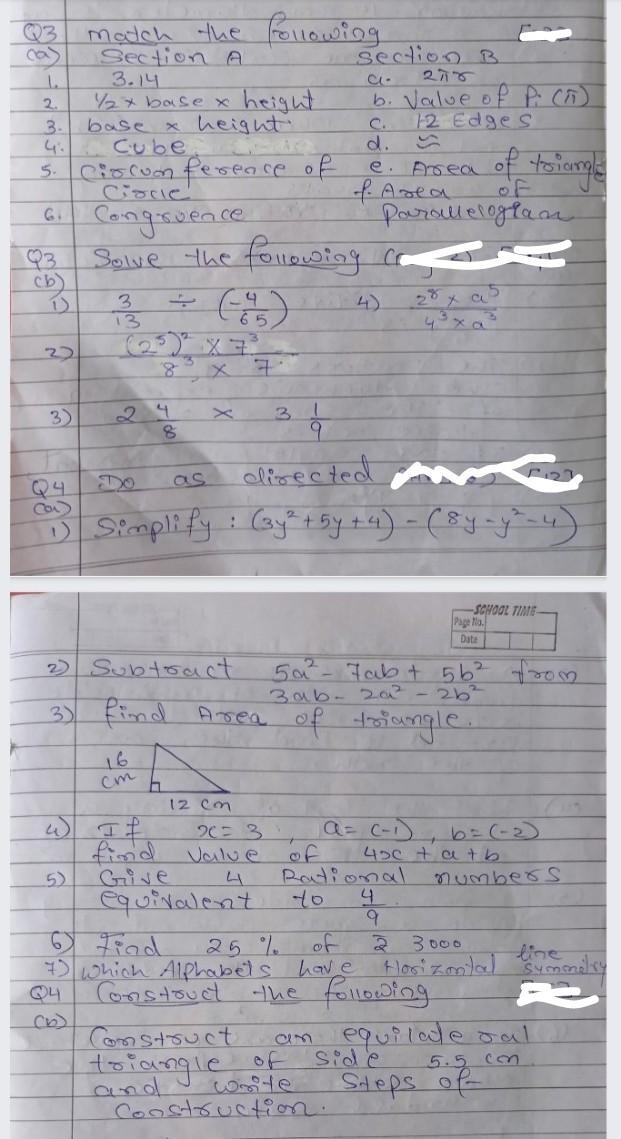 Q3 Match the following
(a) Section A Section B
1. 3.14 a. 2πr
2. 1/2 x base x height b. Value of Pi (π)
3. base x height c. 12 Edges
4. Cube d. ≅
5. Circum ference of e. Area of triangle
Circle f. Area of
6. Congruence Parallelogram
Q3 Solve the following
(b)
1) 3/13 ÷ (-4/65) 4) 2⁸ x a⁵ / 4³ x a³
2) (2⁵)² x 7³ / 8³ x 7
3) 2 4/8 x 3 1/9
Q4 Do as directed
(a)
1) Simplify : (3y² + 5y + 4) - (8y - y² - 4)
SCHOOL TIME
Page No.
Date
2) Subtract 5a² - 7ab + 5b² from
3ab - 2a² - 2b²
3) find Area of triangle.
16
cm
12 cm
4) If x = 3 , a = (-1) , b = (-2)
find value of 4x + a + b
5) Give 4 Rational numbers
equivalent to 4/9
6) Find 25 % of ₹ 3000
7) Which Alphabets have Horizontal line symmetry
Q4 Construct the following
(b)
Construct an equilateral
triangle of side 5.5 cm
and write Steps of
Construction.